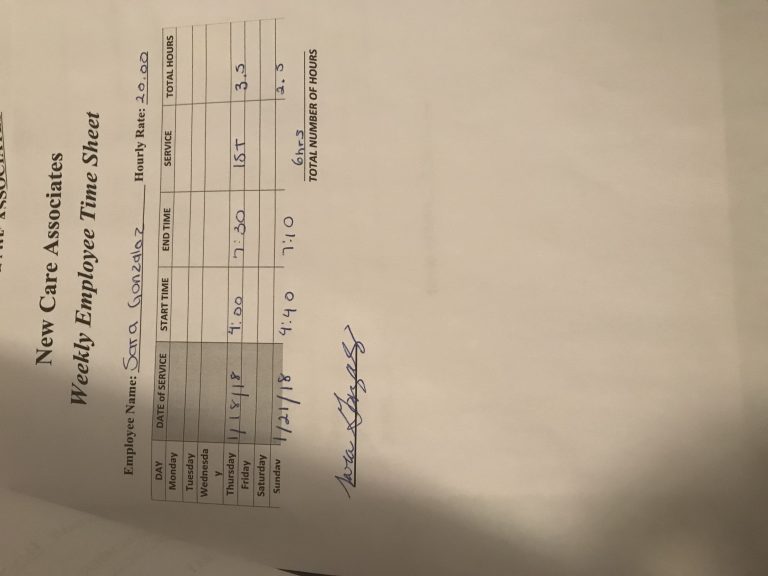 New Care Associates
Weekly Employee Time Sheet
Employee Name: Sara Gonzalez Hourly Rate: 20.00
DAY DATE of SERVICE START TIME END TIME SERVICE TOTAL HOURS
Monday
Tuesday
Wednesda
y
Thursday 1/18/18 4:00 7:30 IST 3.5
Friday
Saturday
Sunday 1/21/18 4:40 7:10 2.5
6hrs
TOTAL NUMBER OF HOURS
Sara Gonzalez